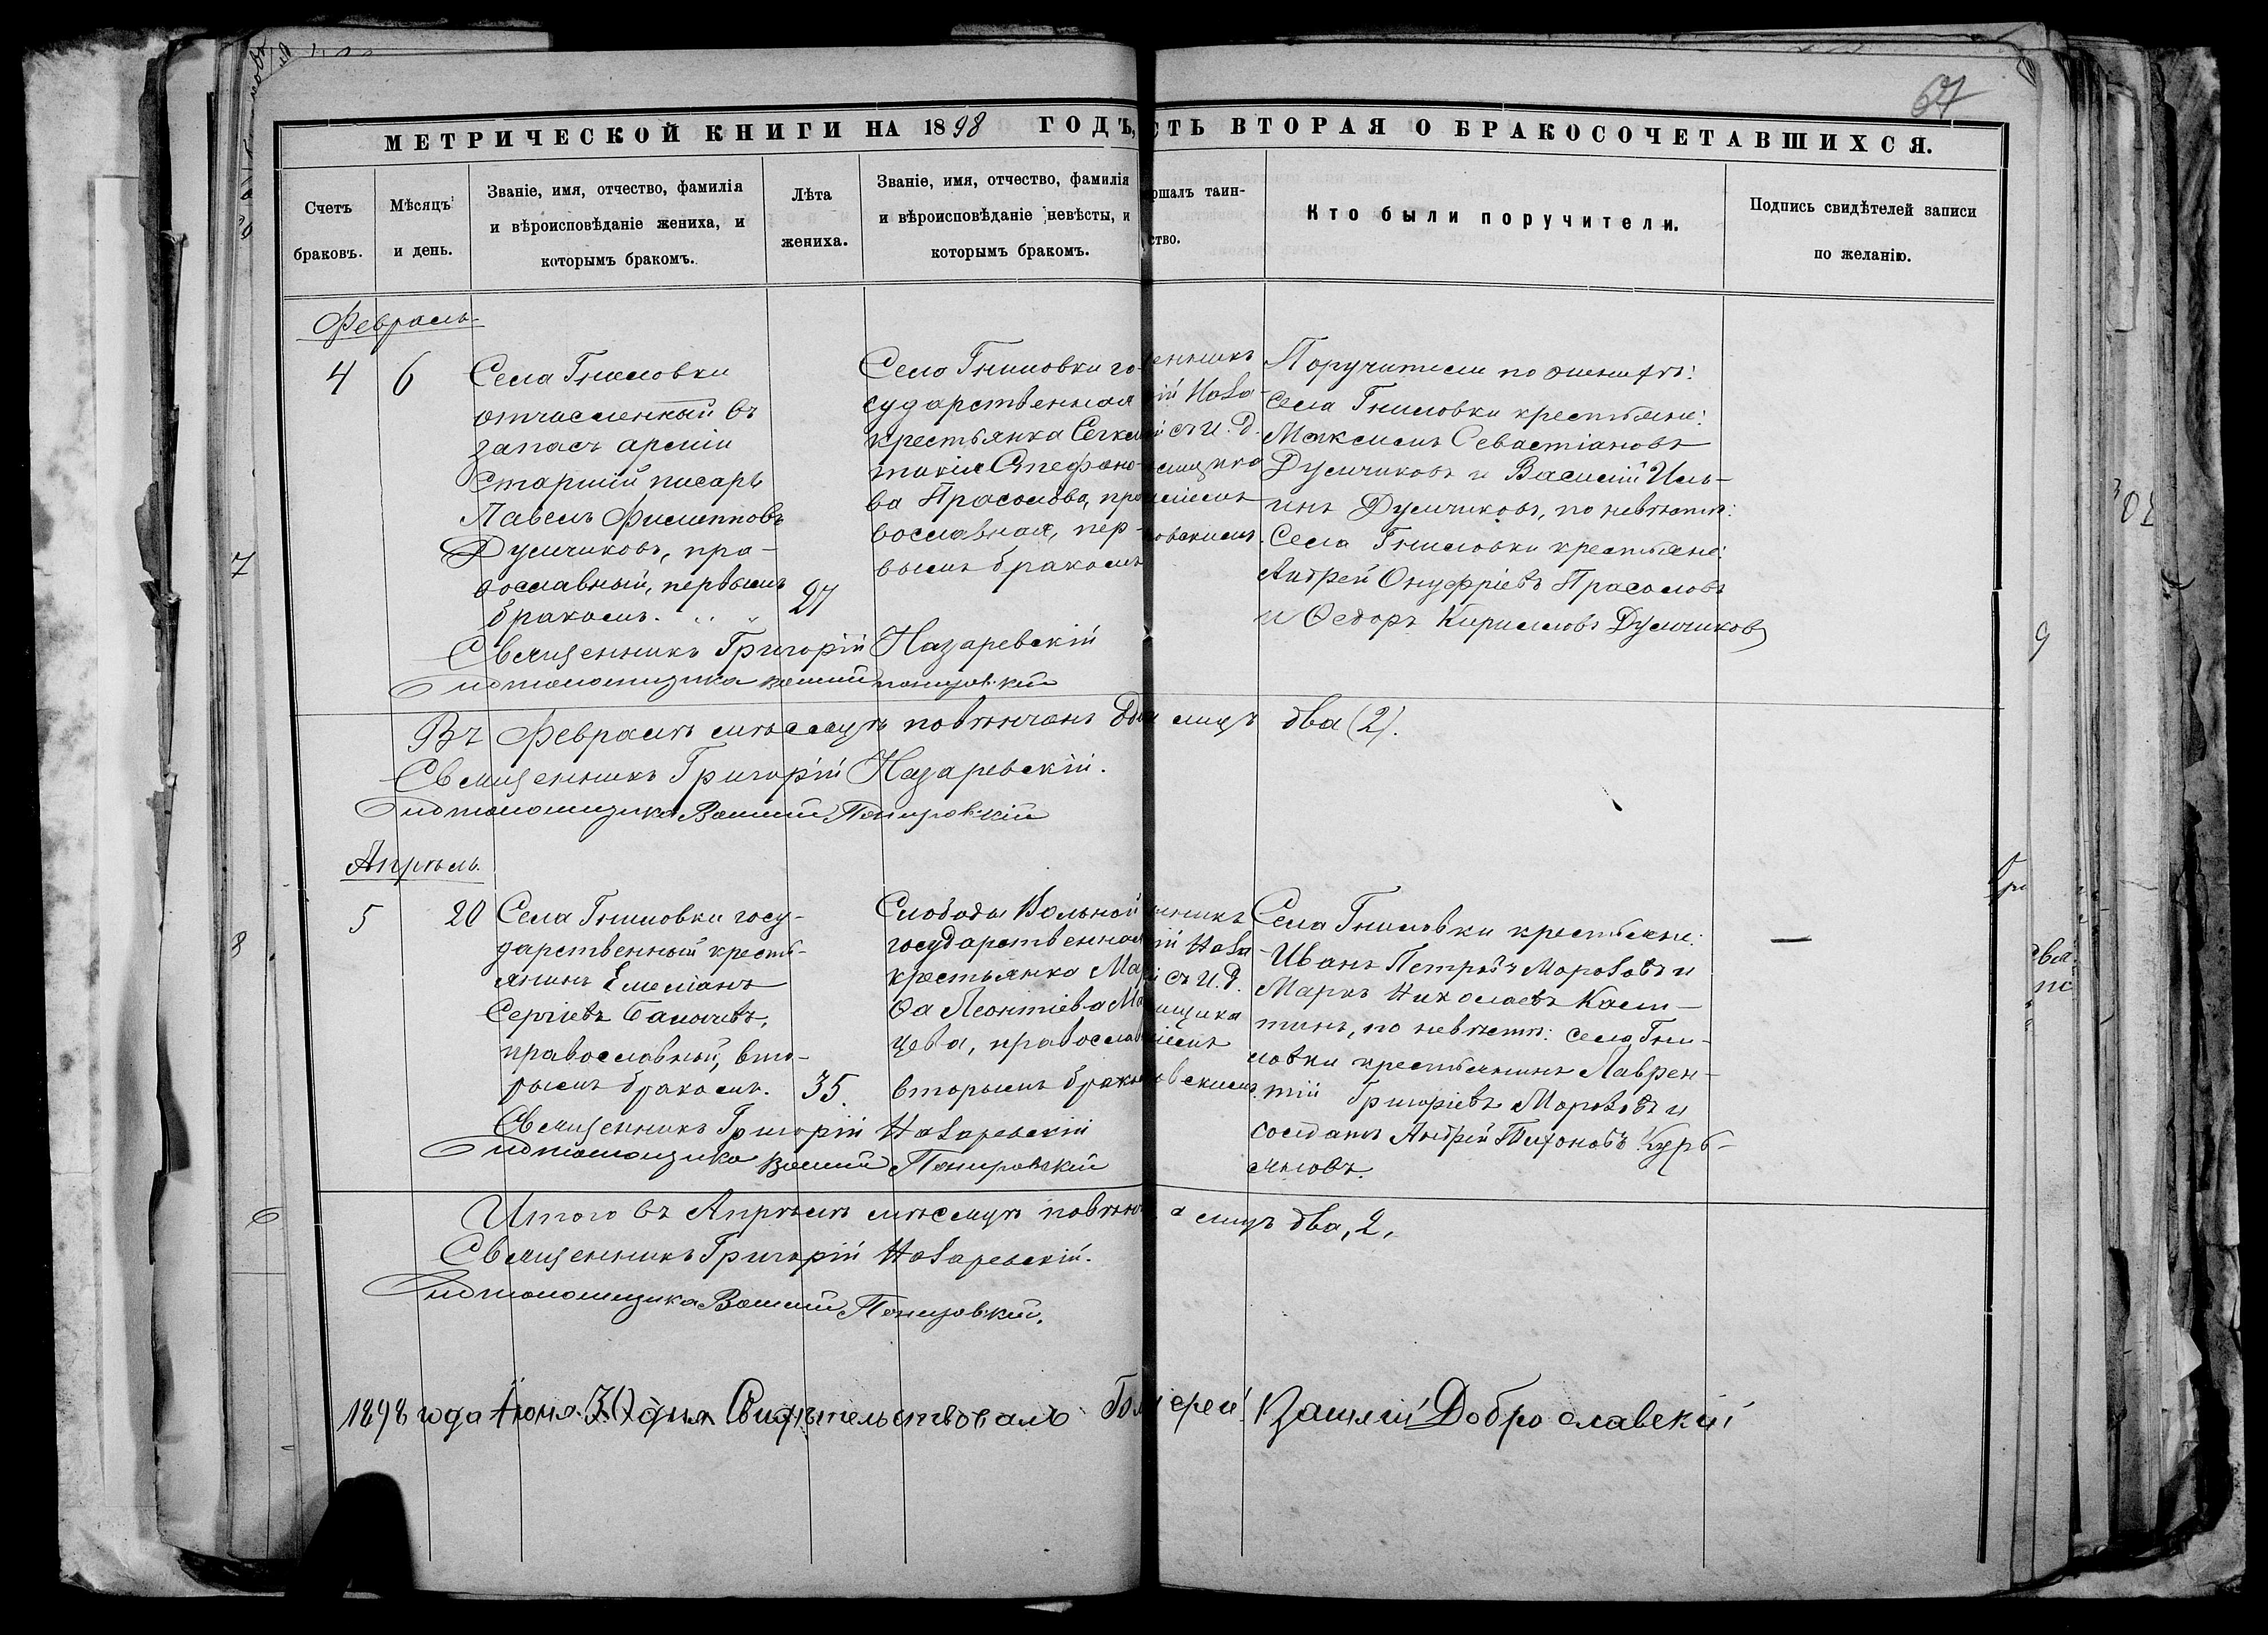 67
МЕТРИЧЕСКОЙ КНИГИ НА 1898 ГОДЪ,
СТЬ ВТОРАЯ О БРАКОСОЧЕТАВШИХСЯ.
Счетъ браковъ.
Мѣсяцъ и день.
Званіе, имя, отчество, фамилія
и вѣроисповѣданіе жениха, и
которымъ бракомъ.
Лѣта жениха.
Званіе, имя, отчество, фамилія
и вѣроисповѣданіе невѣсты, и
которымъ бракомъ.
ршалъ таин-
ство.
Кто были поручители.
Подпись свидѣтелей записи
по желанію.
Февраль
4
6
Села Гниловки
отчисленный въ
запасъ арміи
Старшій писарь
Павелъ Филипповъ
Думчиковъ, пра-
вославный, первымъ
бракомъ.
27
Села Гниловки го-
сударственная
крестьянка
Стефано-
ва Прасолова, пра
вославная, пер-
вымъ бракомъ
енникъ
ій Наза-
съ И. д.
ломщика
иліемъ
ровскимъ.
Поручители по женихѣ:
Села Гниловки крестьяне:
Максимъ Севастіановъ
Думчиковъ и Василій Иль-
инъ Думчиковъ, по невѣстѣ:
Села Гниловки крестьяне:
Андрей Онуфріевъ Прасоловъ
и Ѳедоръ Кирилловъ Думчиковъ
Священникъ Григорій Назаревскій
И д псаломщика Василій
Въ Февралѣ мѣсяцѣ повѣнчанъ
лицъ два (2).
Священникъ Григорій Назаревскій.
И д псаломщика Василій
Апрѣль.
5
20
Села Гниловки госу-
дарственный кресть-
янинъ Емеліанъ
Сергіевъ
православный, вто-
рымъ бракомъ.
35.
Слободы Вольной
государственная
крестьянка Ма
Леонтіева Ма
цева, православ
вторымъ брако
енникъ
ій Наза-
съ И. д.
мщика
иліемъ
овскимъ.
Села Гниловки крестьяне:
Иванъ Петровъ Морозовъ и
Маркъ Николаевъ
по невѣстѣ: села Гни-
ловки крестьянинъ Лаврен-
тій Григоріевъ Морозовъ и
солдатъ Андрей Тихоновъ
Священникъ Григорій Назаревскій
И д псаломщика Василій
Итого въ Апрѣлѣ мѣсяцѣ повѣнч
лицъ два, 2.
Священникъ Григорій Назаревскій.
И д псаломщика Василій
1898 года Іюня 30 дня Свидѣтельствовалъ
ерей Василій Доброславскій